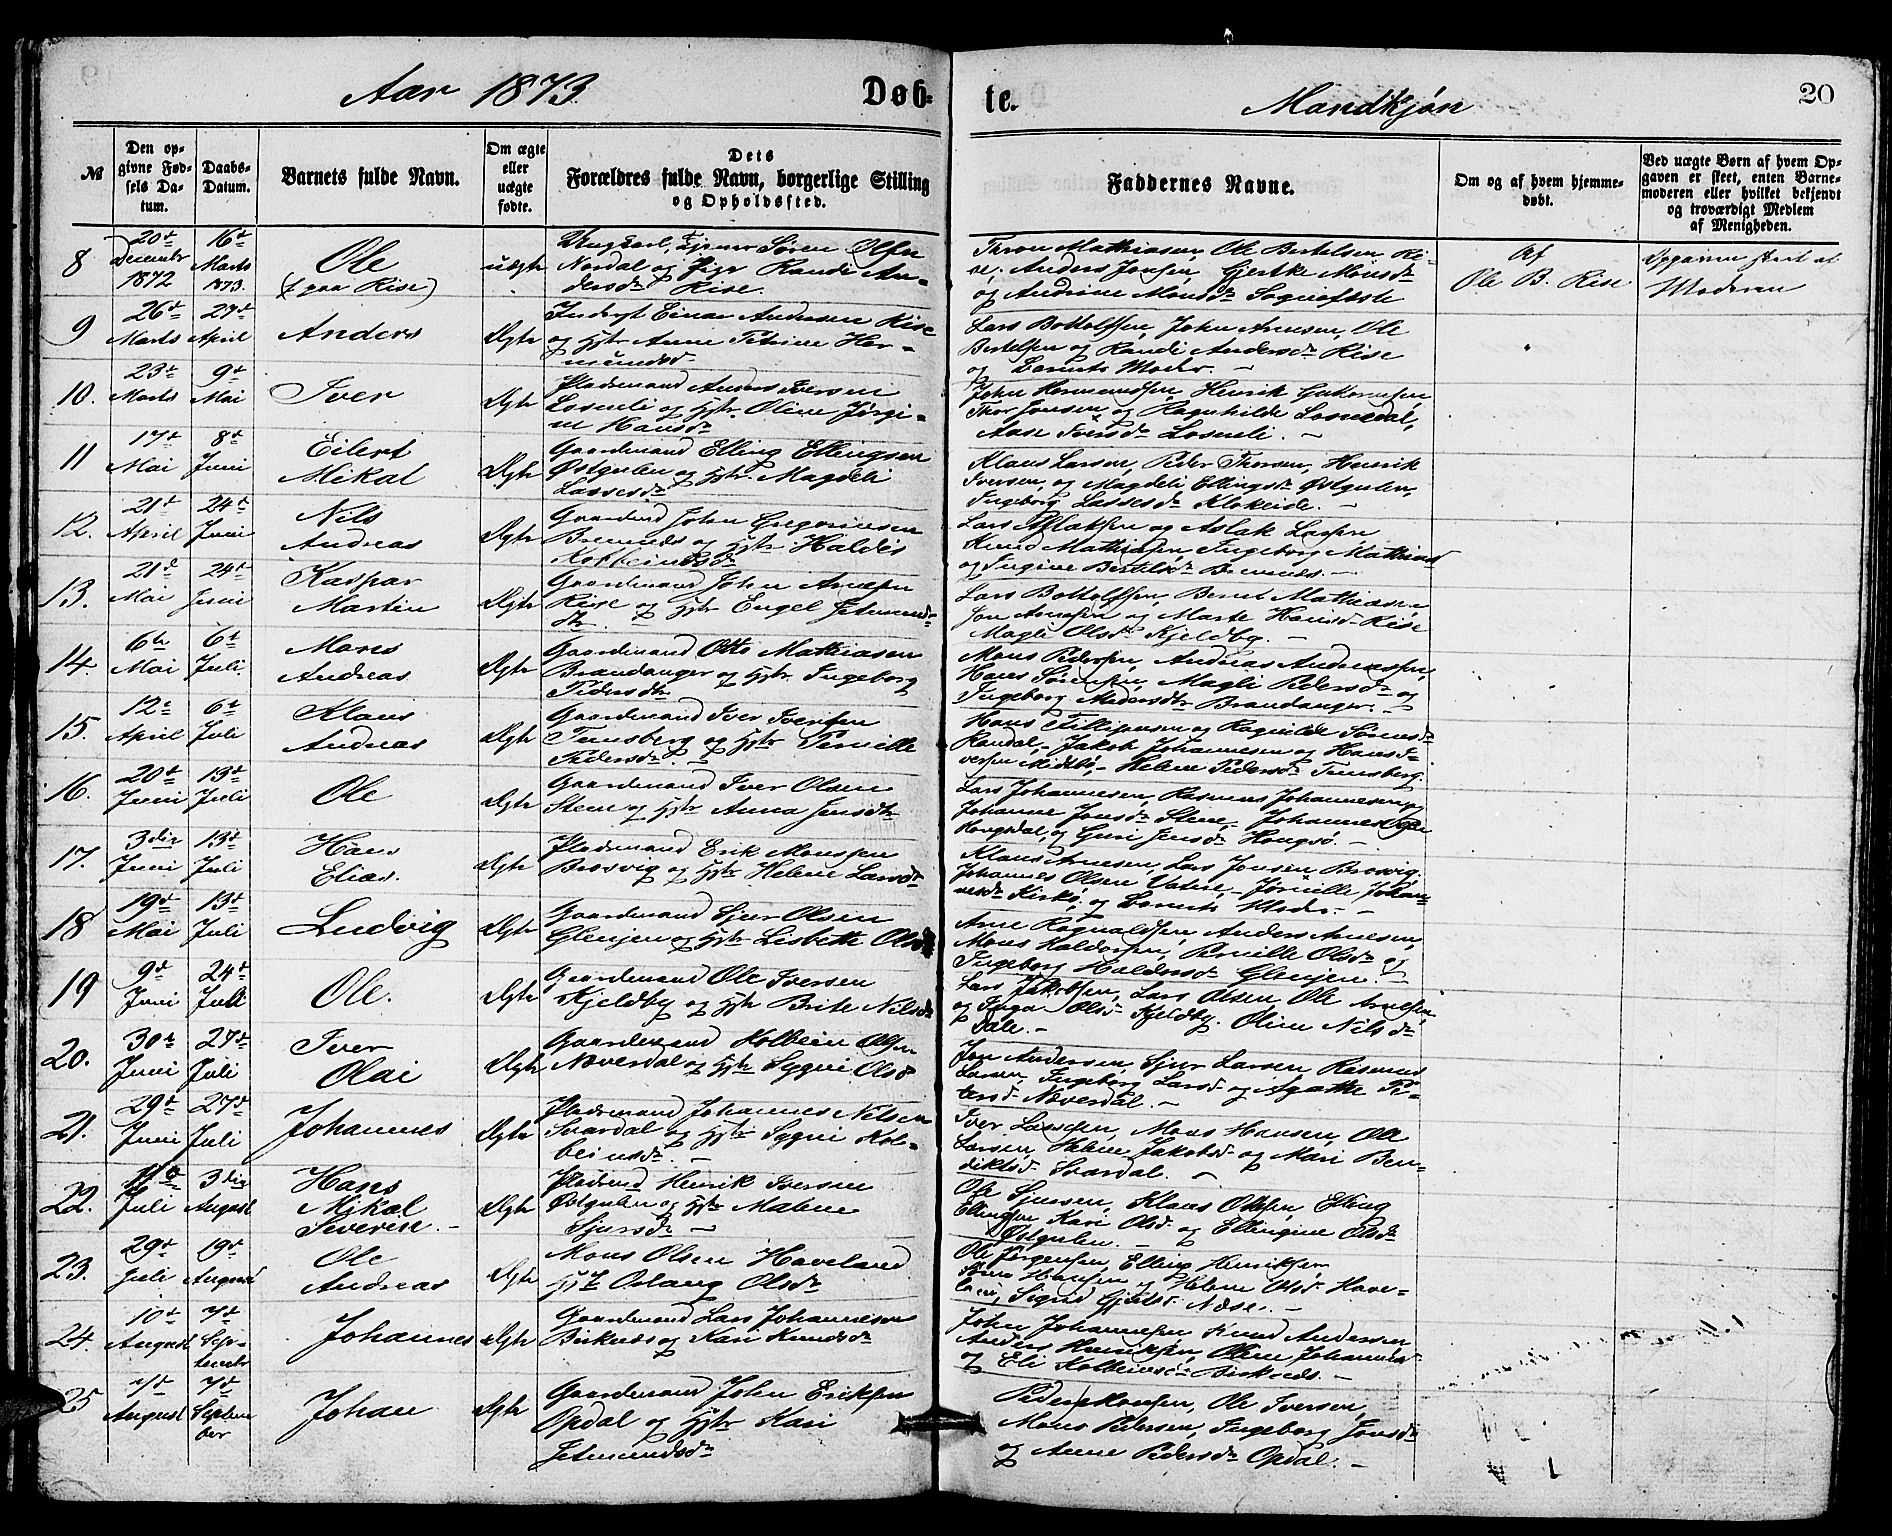 Aar 1873
Døb-
te.
Mandkjøn
20
№
Den op-
givne Fød-
sels Da-
tum.
Daabs-
Datum.
Barnets fulde Navn.
Om ægte
eller
uægte
fødte.
Dets
Forældres fulde Navn, borgerlige Stilling
og Opholdssted.
Faddernes Navne.
Om og af hvem hjemme-
døbt.
Ved uægte Børn af hvem Op-
gaven er skeet, enten Barne-
moderen eller hvilket bekjendt
og troværdigt Medlem
af Menigheden.
8
20de December 1872
16de Marts 1873.
Ole
(f. paa Rise)
uægte
Ungkarl, Søren Olsen
Nordal og Pige Randi An-
dersdr Rise.
Thron Mathiasen, Ole Bertelsen Ri-
se, Anders Jonsen, Gjertke Monsdr
og Andrine Monsdr
Af
Ole B. Rise
Opgaven skeet af
Moderen
9
26de Marts
27de April
Anders
Ægte
Inderst Einar Andersen Rise
og Hstr Anne Petrine Her-
mundsdr
Lars Bottolfsen, John Arnesen, Ole
Bertelsen og Randi Andersdr Rise
og Barnets Moder. —
10.
23de Marts
9de Mai
Iver
Ægte
Pladsmand Anders Iversen
Losneli og Hstr. Oline Jørgi-
ne Hansdr
John Hermundsen, Henrik Guttormsen
Thor Jonsen og Ragnhilde Losnedal,
Aase Iversdr Losneli. —
11
17de Mai
8de Juni
Eilert
Mikal
Ægte
Gaardmand Elling Ellingsen
Østgulen og Hstr. Magdeli
Lassesdr
Klaus Larsen, Peder Thorsen, Henrik
Iversen, og Magdeli Ellingsdr Østgulen,
Ingeborg Lassesdr Klokeide. —
12.
21de April
24de Juni
Nils
Andreas
Ægte
Gaardmd John Gregoriusen
Bremnes og Hstr Haldis
Kolbeinsdr
Lars Aslaksen og Aslak Larsen
Knud Mathiasen, Ingeborg Mathiasd
og Ingine Bertelsdr Bremnes. —
13.
21de Mai
24de Juni
Kaspar
Martin
Ægte
Gaardmand John Arnesen
Rise og Hstr Engel Jetmunds-
dtr.
Lars Bottolfsen, Bernt Mathiasen
Jon Arnesen og Marte Hansd Rise
Magli Olsdr Kjeldby. —
14.
6te Mai
6te Juli.
Mons
Andreas
Ægte
Gaardmand Otto Mathiasen
Brandanger og Hstr. Ingeborg
Pedersdtr
Mons Pedersen, Andreas Andreassen,
Hans Sørensen, Magli Pedersdr og
Ingeborg Brandanger. —
15.
12te April
6te Juli
Klaus
Andreas
Ægte
Gaardmand Iver Iversen
Tansberg og Hstr Pernille
Pedersdr. —
Hans Fillipusen og Ragnilde Sørensdr
Randal, Jakob Johannesen og Hans I-
versen Midtbø, Helene Pedersdr Tunsberg.
16.
20de Juni
13de Juli
Ole
Ægte
Gaardmand Iver Olsen
Stene og Hstr Anna Jensdtr
Lars Johannesen, Rasmus Johannesen og
Johanne Jonsdr Stene, Johannes
Hougsdal, og Guri Jensdr Hougsø. —
17.
3die Juni
13de Juli
Hans
Elias.
Ægte
Pladsmand Erik Monssen
Brosvig og Hstr Helene Larsdr
Klaus Arnesen, Lars Jonsen Brosvig,
Johannes Olsen Vatne, Jørnille Johan-
nesdr Kirkø, og Barnets Moder. —
18
19de Mai
13de Juli
Ludvig
Ægte
Gaardmand Sjur Olsen
Glenjen og Hstr Lisbette Olsdr
Arne Ragnvaldsen, Anders Arnesen,
Mons Haldorsen, Pernille Olsdr og
Ingeborg Haldorsdr Glenjen. —
19
9de Juni
24de Juli
Ole.
Ægte
Gaardmand Ole Iversen
Kjeldby og Hstr Brite Nilsdr
Lars Jakobsen, Lars Olsen, Ole Arnesen,
og Inga Olsdr Kjeldby. Oline Nilsdr
Dale. —
20.
30te Juni
27de Juli
Iver
Olai
Ægte
Gaardmand Kolbein Olsen
Nøverdal og Hstr Sygni Olsd
Jon Andersen, Sjur Larsen, Rasmus
Larsen, Ingeborg Larsd og Agathe Pe-
tersd Nøverdal. —
21.
29de Juni
27de Juli
Johannes
Ægte
Pladsmand Johannes Nilsen
Svardal og Hstr Sygni Kol-
beinsdr. —
Iver Lassesen, Mons Hansen, Ole
Larsen, Helene Jakobsd og Mari Ben-
diktsd Svardal. —
22.
Juli
3die August
Hans
Mikal
Severin. —
Ægte
Pladsmd Henrik Iversen
Østgulen og Hstr Malene
Sjursdr —
Ole Sjursen, Klaus Olsen, Elling
Ellingsen, Kari Olsd. og Ellingine Olsdr
Østgulen. —
23.
29de Juli
19de August
Ole
Andreas
Ægte
Mons Olsen Haveland
Hstr Oslaug Olsdr
Ole Jørgensen, Elling Henriksen,
Hansen og Helene Olsd Have-
land, Sigrid Næse. —
24.
10de August
7de September
Johannes
Ægte
Gaardmand Lars Johannesen
Birknes og Kari Knudsdr
John Johannessen Knud Andersen
Anders Henriksen, Oline Johannesd
og Eli Kolbeinsdr Birknes. —
25
7de August
7de September
Johan
Ægte
Gaardmand John Eriksen
Opdal og Hstr Kari
Jetmundsdr
Peder Monsen, Ole Iversen,
Mons Pedersen, Ingeborg Jonsdr
og Anne Pedersdr Opdal. —